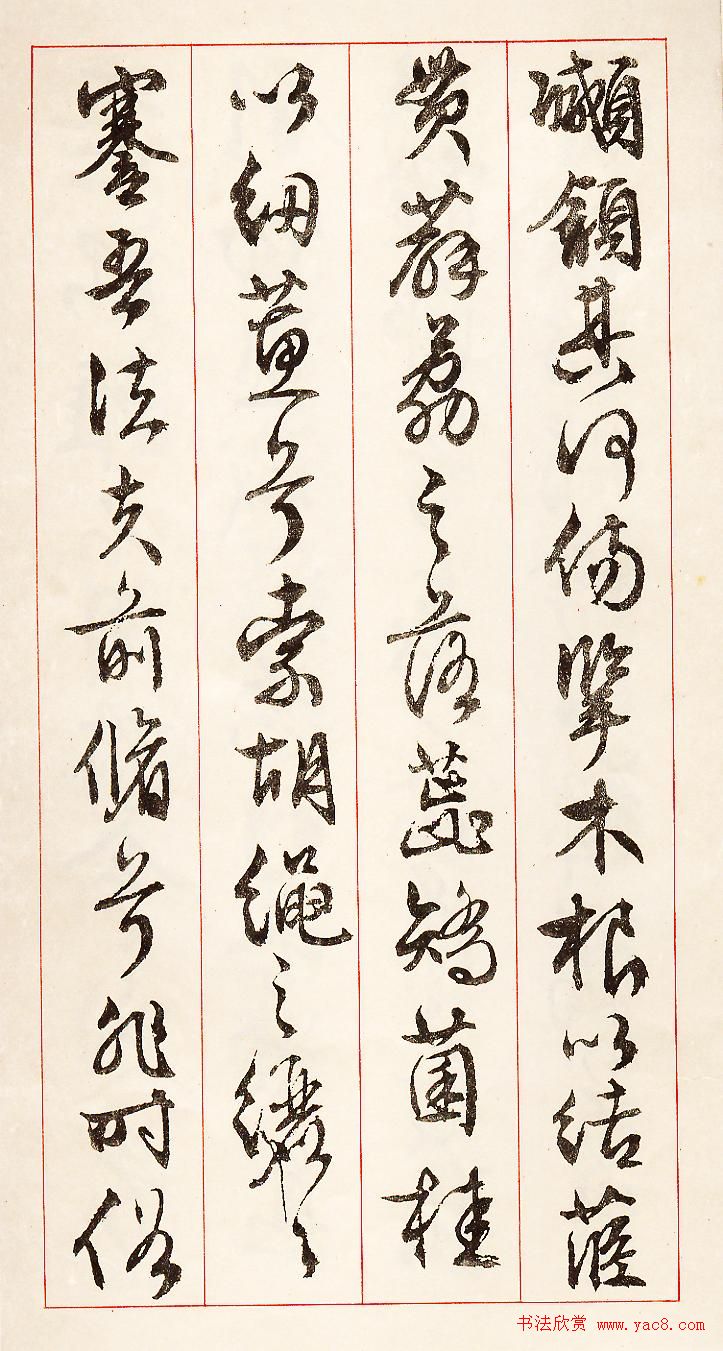 顑頷其何傷擥木根以結茝
貫薜荔之落蕊矯菌桂
以紉蕙兮索胡繩之纚々
謇吾法夫前脩兮非時俗
书法欣赏 www.yac8.com